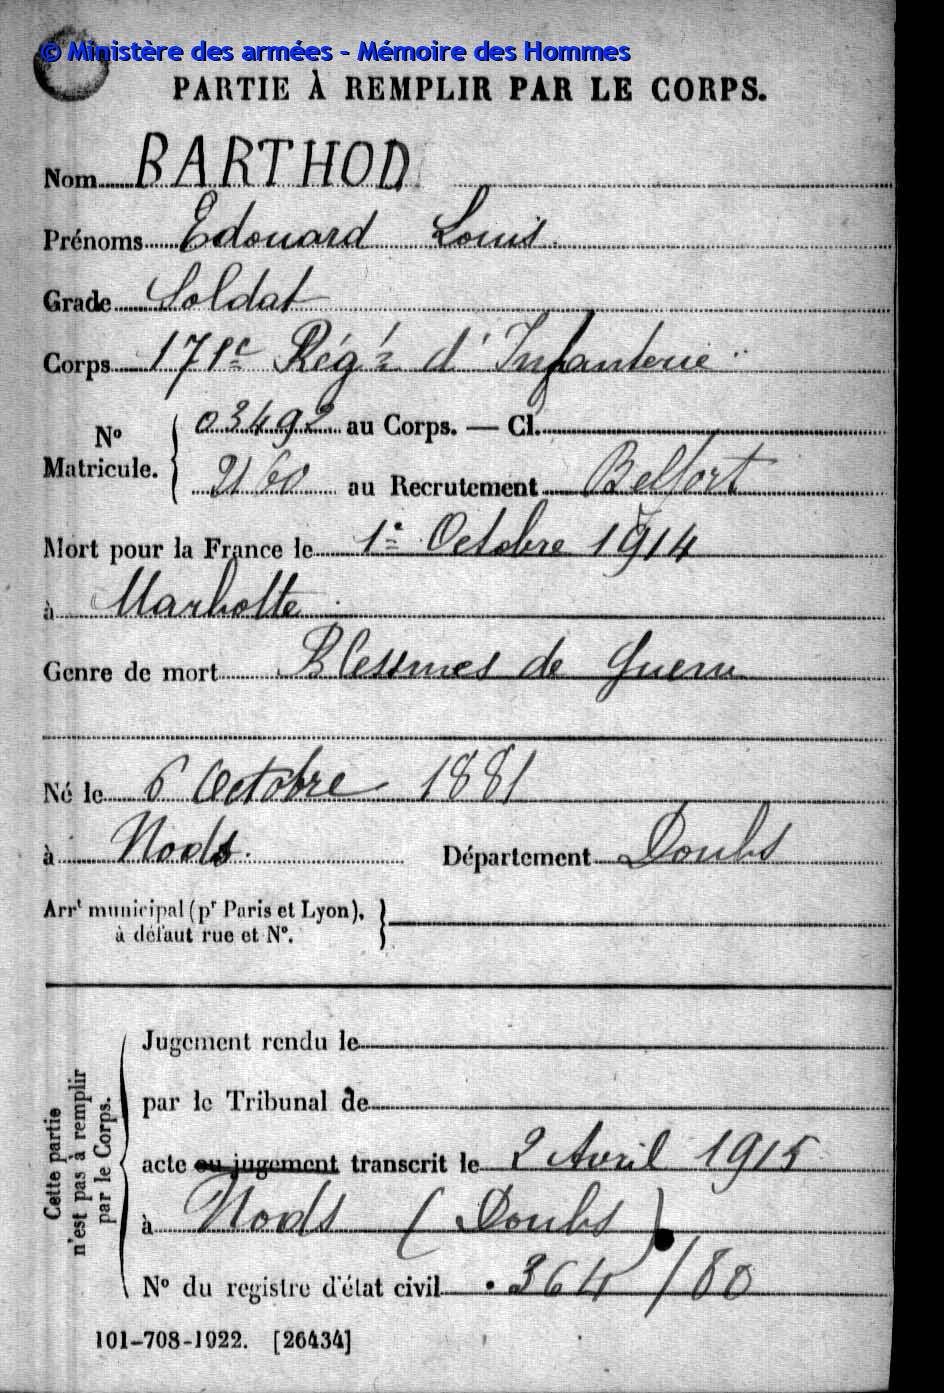 © Ministère des armées - Mémoire des Hommes
PARTIE À REMPLIR PAR LE CORPS.
Nom BARTHOD
Prénoms Edouard Louis
Grade Soldat
Corps 171e Rég't d'Infanterie
N° Matricule. 03492 au Corps. — Cl.
2160 au Recrutement Belfort
Mort pour la France le 1er Octobre 1914
à Marbotte
Genre de mort Blessures de Guerre
Né le 6 Octobre 1881
à Nods. Département Doubs
Arrt municipal (pr Paris et Lyon),
à défaut rue et N°.
Cette partie
n'est pas à remplir
par le Corps.
Jugement rendu le
par le Tribunal de
acte ou jugement transcrit le 2 Avril 1915
à Nods (Doubs)
N° du registre d'état civil 364/80
101-708-1922. [26434]